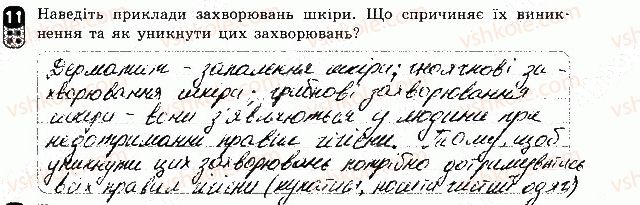 11 Наведіть приклади захворювань шкіри. Що спричиняє їх виник-
нення та як уникнути цих захворювань?
Дерматит - запалення шкіри; гноячкові за-
хворювання шкіри; грибкові захворювання
шкіри - вони з'являються у людини при
недотриманні правил гігієни. Тому, щоб
уникнути цих захворювань потрібно дотримуватись
всіх правил гігієни (купатись, носити чистий одяг)